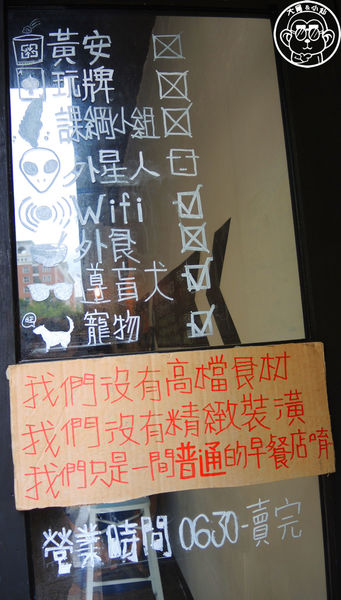 大嘴&小蚪
黃安
玩牌
課綱小組
外星人
Wifi
外食
導盲犬
寵物
我們沒有高檔食材
我們沒有精緻裝潢
我們只是一間普通的早餐店唷
營業時間 0630-賣完